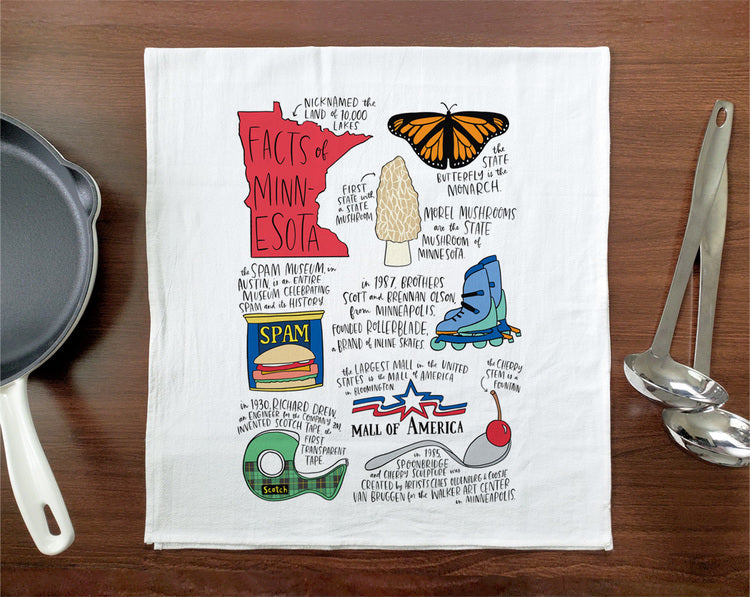 NICKNAMED the
LAND of 10,000
LAKES
FACTS of
MINN-
ESOTA
the
STATE
BUTTERFLY is the
MONARCH.
FIRST
STATE with
a STATE
MUSHROOM
MOREL MUSHROOMS
are the STATE
MUSHROOM of
MINNESOTA.
the SPAM MUSEUM, in
AUSTIN, is an ENTIRE
MUSEUM CELEBRATING
SPAM and its HISTORY
SPAM
in 1987, BROTHERS
SCOTT and BRENNAN OLSON,
from MINNEAPOLIS,
FOUNDED ROLLERBLADE,
a BRAND of INLINE SKATES.
the LARGEST MALL in the UNITED
STATES is the MALL of AMERICA
in BLOOMINGTON.
MALL OF AMERICA
the CHERRY
STEM is a
FOUNTAIN
in 1930, RICHARD DREW,
an ENGINEER for the COMPANY 3M,
INVENTED SCOTCH TAPE, the
FIRST
TRANSPARENT
TAPE.
Scotch
in 1985,
SPOONBRIDGE
and CHERRY SCULPTURE was
CREATED by ARTISTS CLAES OLDENBURG & COOSJE
VAN BRUGGEN for the WALKER ART CENTER
in MINNEAPOLIS.